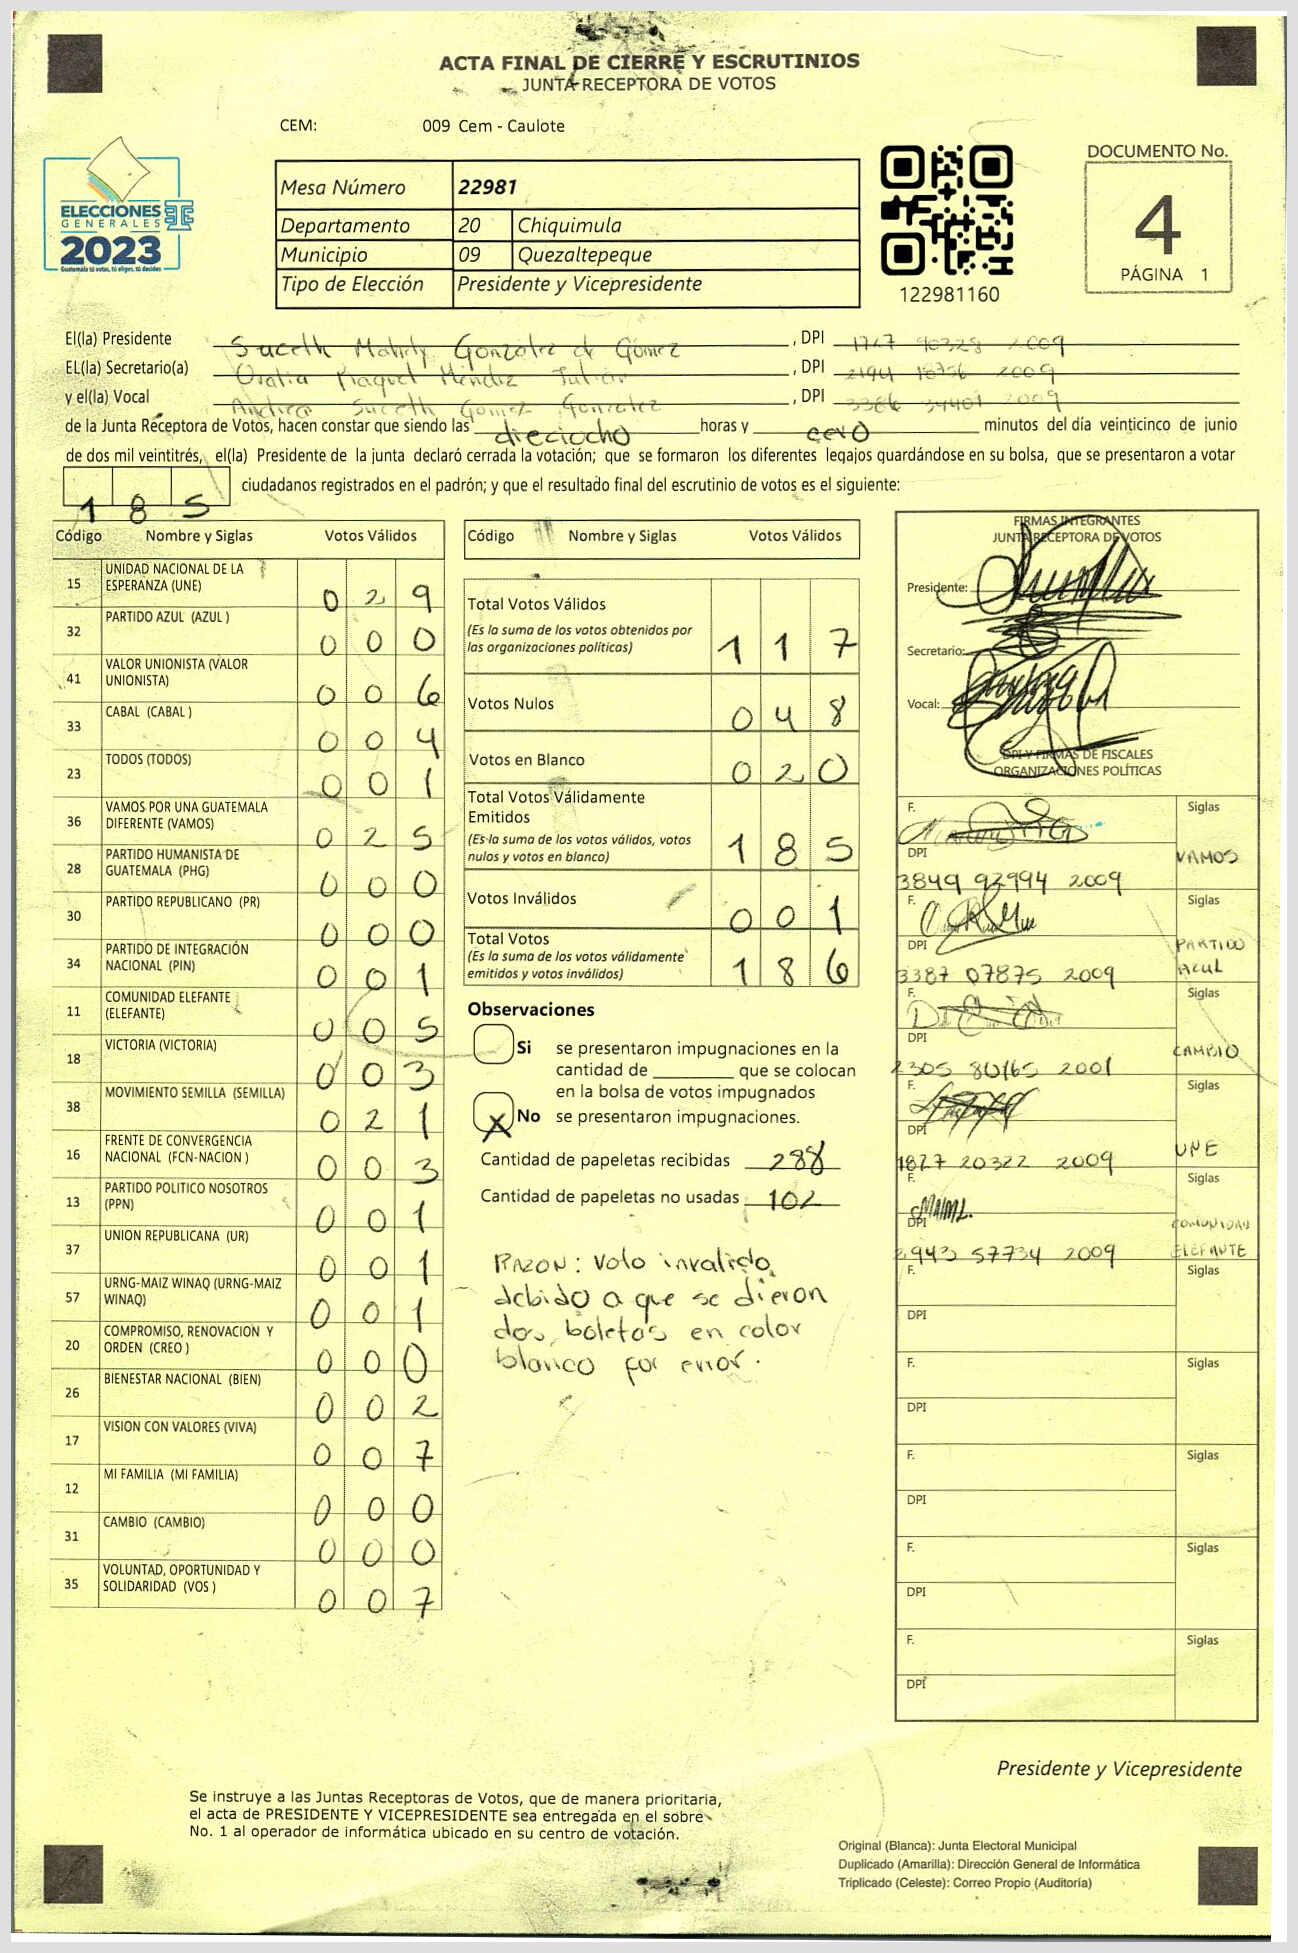 ACTA FINAL DE CIERRE Y ESCRUTINIOS
JUNTA RECEPTORA DE VOTOS
CEM: 009 Cem - Caulote
ELECCIONES
GENERALES
2023
Guatemala tú votas, tú eliges, tú decides
Mesa Número 22981
Departamento 20 Chiquimula
Municipio 09 Quezaltepeque
Tipo de Elección Presidente y Vicepresidente
122981160
DOCUMENTO No.
4
PÁGINA 1
El(la) Presidente Gonzalez de Gómez , DPI 2009
EL(la) Secretario(a) Raquel Méndez , DPI 2009
y el(la) Vocal Andrea Suceth Gomez Gonzalez , DPI 3386 34401 2009
de la Junta Receptora de Votos, hacen constar que siendo las dieciocho horas y cero minutos del día veinticinco de junio
de dos mil veintitrés, el(la) Presidente de la junta declaró cerrada la votación; que se formaron los diferentes legajos guardándose en su bolsa, que se presentaron a votar
185 ciudadanos registrados en el padrón; y que el resultado final del escrutinio de votos es el siguiente:
Código Nombre y Siglas Votos Válidos
15 UNIDAD NACIONAL DE LA ESPERANZA (UNE) 0 2 9
32 PARTIDO AZUL (AZUL ) 0 0 0
41 VALOR UNIONISTA (VALOR UNIONISTA) 0 0 6
33 CABAL (CABAL ) 0 0 4
23 TODOS (TODOS) 0 0 1
36 VAMOS POR UNA GUATEMALA DIFERENTE (VAMOS) 0 2 5
28 PARTIDO HUMANISTA DE GUATEMALA (PHG) 0 0 0
30 PARTIDO REPUBLICANO (PR) 0 0 0
34 PARTIDO DE INTEGRACIÓN NACIONAL (PIN) 0 0 1
11 COMUNIDAD ELEFANTE (ELEFANTE) 0 0 5
18 VICTORIA (VICTORIA) 0 0 3
38 MOVIMIENTO SEMILLA (SEMILLA) 0 2 1
16 FRENTE DE CONVERGENCIA NACIONAL (FCN-NACION ) 0 0 3
13 PARTIDO POLITICO NOSOTROS (PPN) 0 0 1
37 UNION REPUBLICANA (UR) 0 0 1
57 URNG-MAIZ WINAQ (URNG-MAIZ WINAQ) 0 0 1
20 COMPROMISO, RENOVACION Y ORDEN (CREO ) 0 0 0
26 BIENESTAR NACIONAL (BIEN) 0 0 2
17 VISION CON VALORES (VIVA) 0 0 7
12 MI FAMILIA (MI FAMILIA) 0 0 0
31 CAMBIO (CAMBIO) 0 0 0
35 VOLUNTAD, OPORTUNIDAD Y SOLIDARIDAD (VOS ) 0 0 7
Código Nombre y Siglas Votos Válidos
Total Votos Válidos 1 1 7
(Es la suma de los votos obtenidos por
las organizaciones políticas)
Votos Nulos 0 4 8
Votos en Blanco 0 2 0
Total Votos Válidamente
Emitidos 1 8 5
(Es la suma de los votos válidos, votos
nulos y votos en blanco)
Votos Inválidos 0 0 1
Total Votos 1 8 6
(Es la suma de los votos válidamente
emitidos y votos inválidos)
Observaciones
Si se presentaron impugnaciones en la
cantidad de ________ que se colocan
en la bolsa de votos impugnados
X No se presentaron impugnaciones.
Cantidad de papeletas recibidas 288
Cantidad de papeletas no usadas 102
RAZON: Voto invalido
debido a que se dieron
dos boletas en color
blanco por error.
FIRMAS INTEGRANTES
JUNTA RECEPTORA DE VOTOS
Presidente:
Secretario:
Vocal:
DPI Y FIRMAS DE FISCALES
ORGANIZACIONES POLÍTICAS
F. Siglas
DPI VAMOS
3849 92994 2009
F. Siglas
DPI PARTIDO AZUL
3387 07875 2009
F. Siglas
DPI CAMBIO
2305 80165 2001
F. Siglas
DPI UNE
1827 20322 2009
F. Siglas
DPI COMUNIDAD ELEFANTE
2943 57734 2009
F. Siglas
DPI
F. Siglas
DPI
F. Siglas
DPI
F. Siglas
DPI
F. Siglas
DPI
Presidente y Vicepresidente
Se instruye a las Juntas Receptoras de Votos, que de manera prioritaria,
el acta de PRESIDENTE Y VICEPRESIDENTE sea entregada en el sobre
No. 1 al operador de informática ubicado en su centro de votación.
Original (Blanca): Junta Electoral Municipal
Duplicado (Amarilla): Dirección General de Informática
Triplicado (Celeste): Correo Propio (Auditoría)